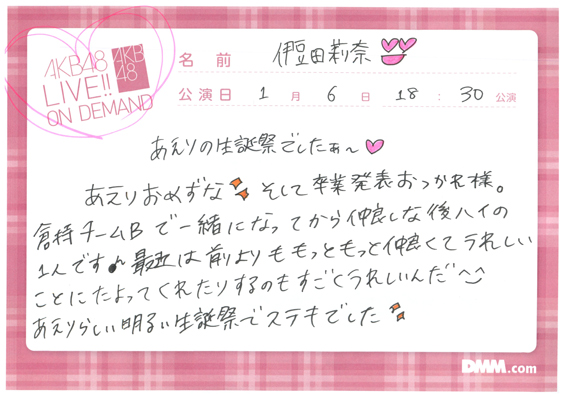 AKB48 AKB
48
LIVE!!
ON DEMAND
名 前 伊豆田莉奈
公演日 1 月 6 日 18 : 30 公演
あえりの生誕祭でしたぁ〜
あえりおめずな そして卒業発表おつかれ様。
倉持チームBで一緒になってから仲良しな後ハイの
1人です♪ 最近は前よりももっともっと仲良くてうれしい
ことにたよってくれたりするのもすごくうれしいんだ^^
あえりらしい明るい生誕祭でステキでした
DMM.com